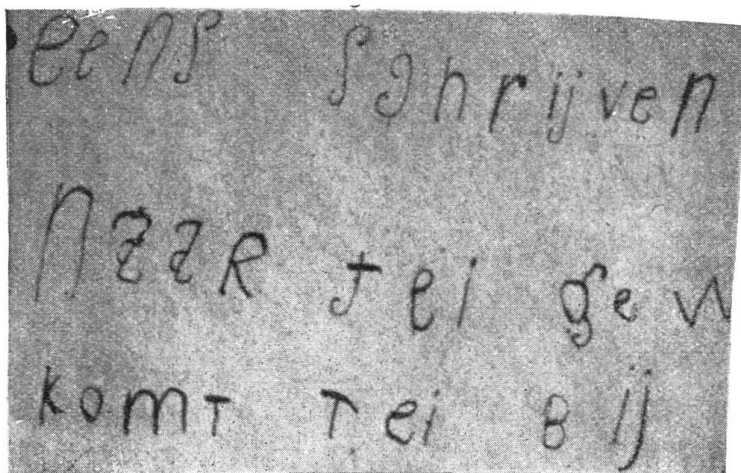 eens schrijven
naar tei gew
komt tei Bij